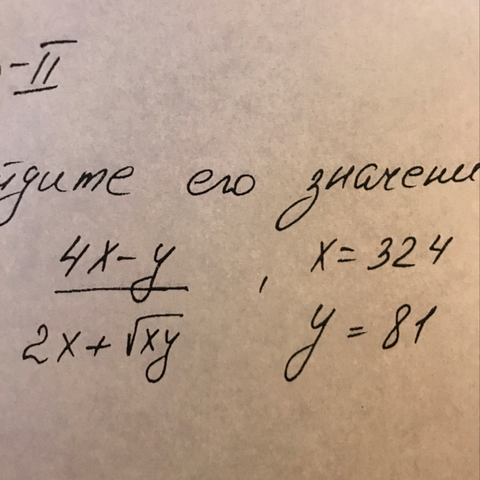 -II
йдите его значени
4x-y / 2x+√xy , x=324
y=81